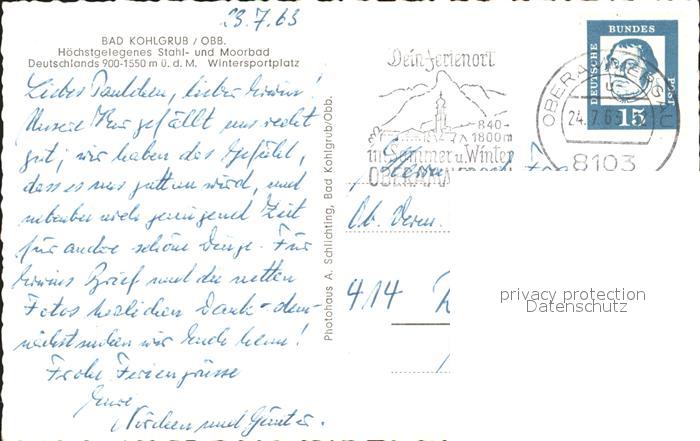 23.7.63
BAD KOHLGRUB / OBB.
Höchstgelegenes Stahl- und Moorbad
Deutschlands 900-1550 m ü. d. M. Wintersportplatz
Liebes Tantchen, lieber Erwin!
Unsere Kur gefällt uns recht
gut; wir haben das Gefühl,
dass es uns guttun wird, und
nebenbei noch genügend Zeit
für andre schöne Dinge. Für
Erwins Brief und die netten
Fotos herzlichen Dank - dem-
nächst mehr
Frohe Feriengrüsse
Eure
und Günter.
Photohaus A. Schlichting, Bad Kohlgrub/Obb.
Dein Ferienort
840-
1800 m
im Sommer u. Winter
OBERAMMERGAU
OBERAMMERGAU
24.7.63
8103
DEUTSCHE BUNDES POST
15
Ob. Verm.
414
privacy protection
Datenschutz